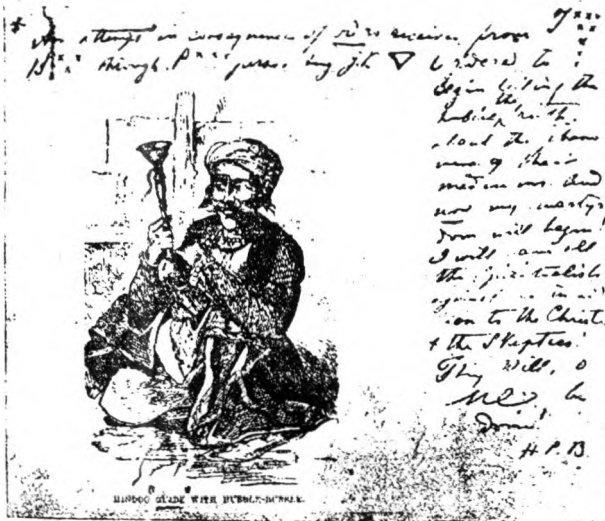 An attempt in consequence of orders received from T***
B*** through P*** person ing J.K.
Ordered to
begin telling the
public, the truth
about the
their
mediums. And
now my martyr
dom will begin!
I will all
the Spiritualists
against me in
ion to the Christ
& the Skeptics!
Thy Will, o
M be
done!
H.P.B.
HINDOO GUIDE WITH HUBBLE-BUBBLE.